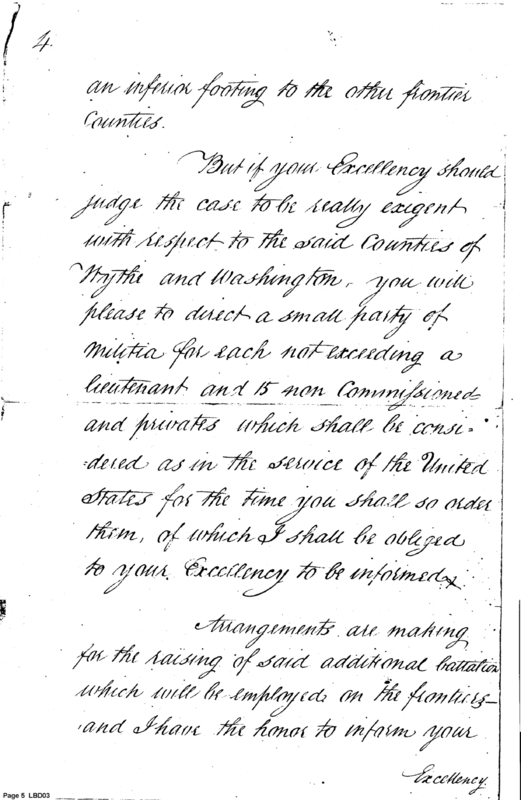 4.
an inferior footing to the other frontier
Counties.
But if your Excellency should
judge the case to be really exigent
with respect to the said Counties of
Wythe and Washington, you will
please to direct a small party of
militia for each not exceeding a
lieutenant and 15 non Commissioned
and privates which shall be consi=
=dered as in the service of the United
States for the time you shall so order
them, of which I shall be obliged
to your Excellency to be informed.
Arrangements are making
for the raising of said additional battalion
which will be employed on the frontiers—
and I have the honor to inform your
Excellency.
Page 5 LBD03